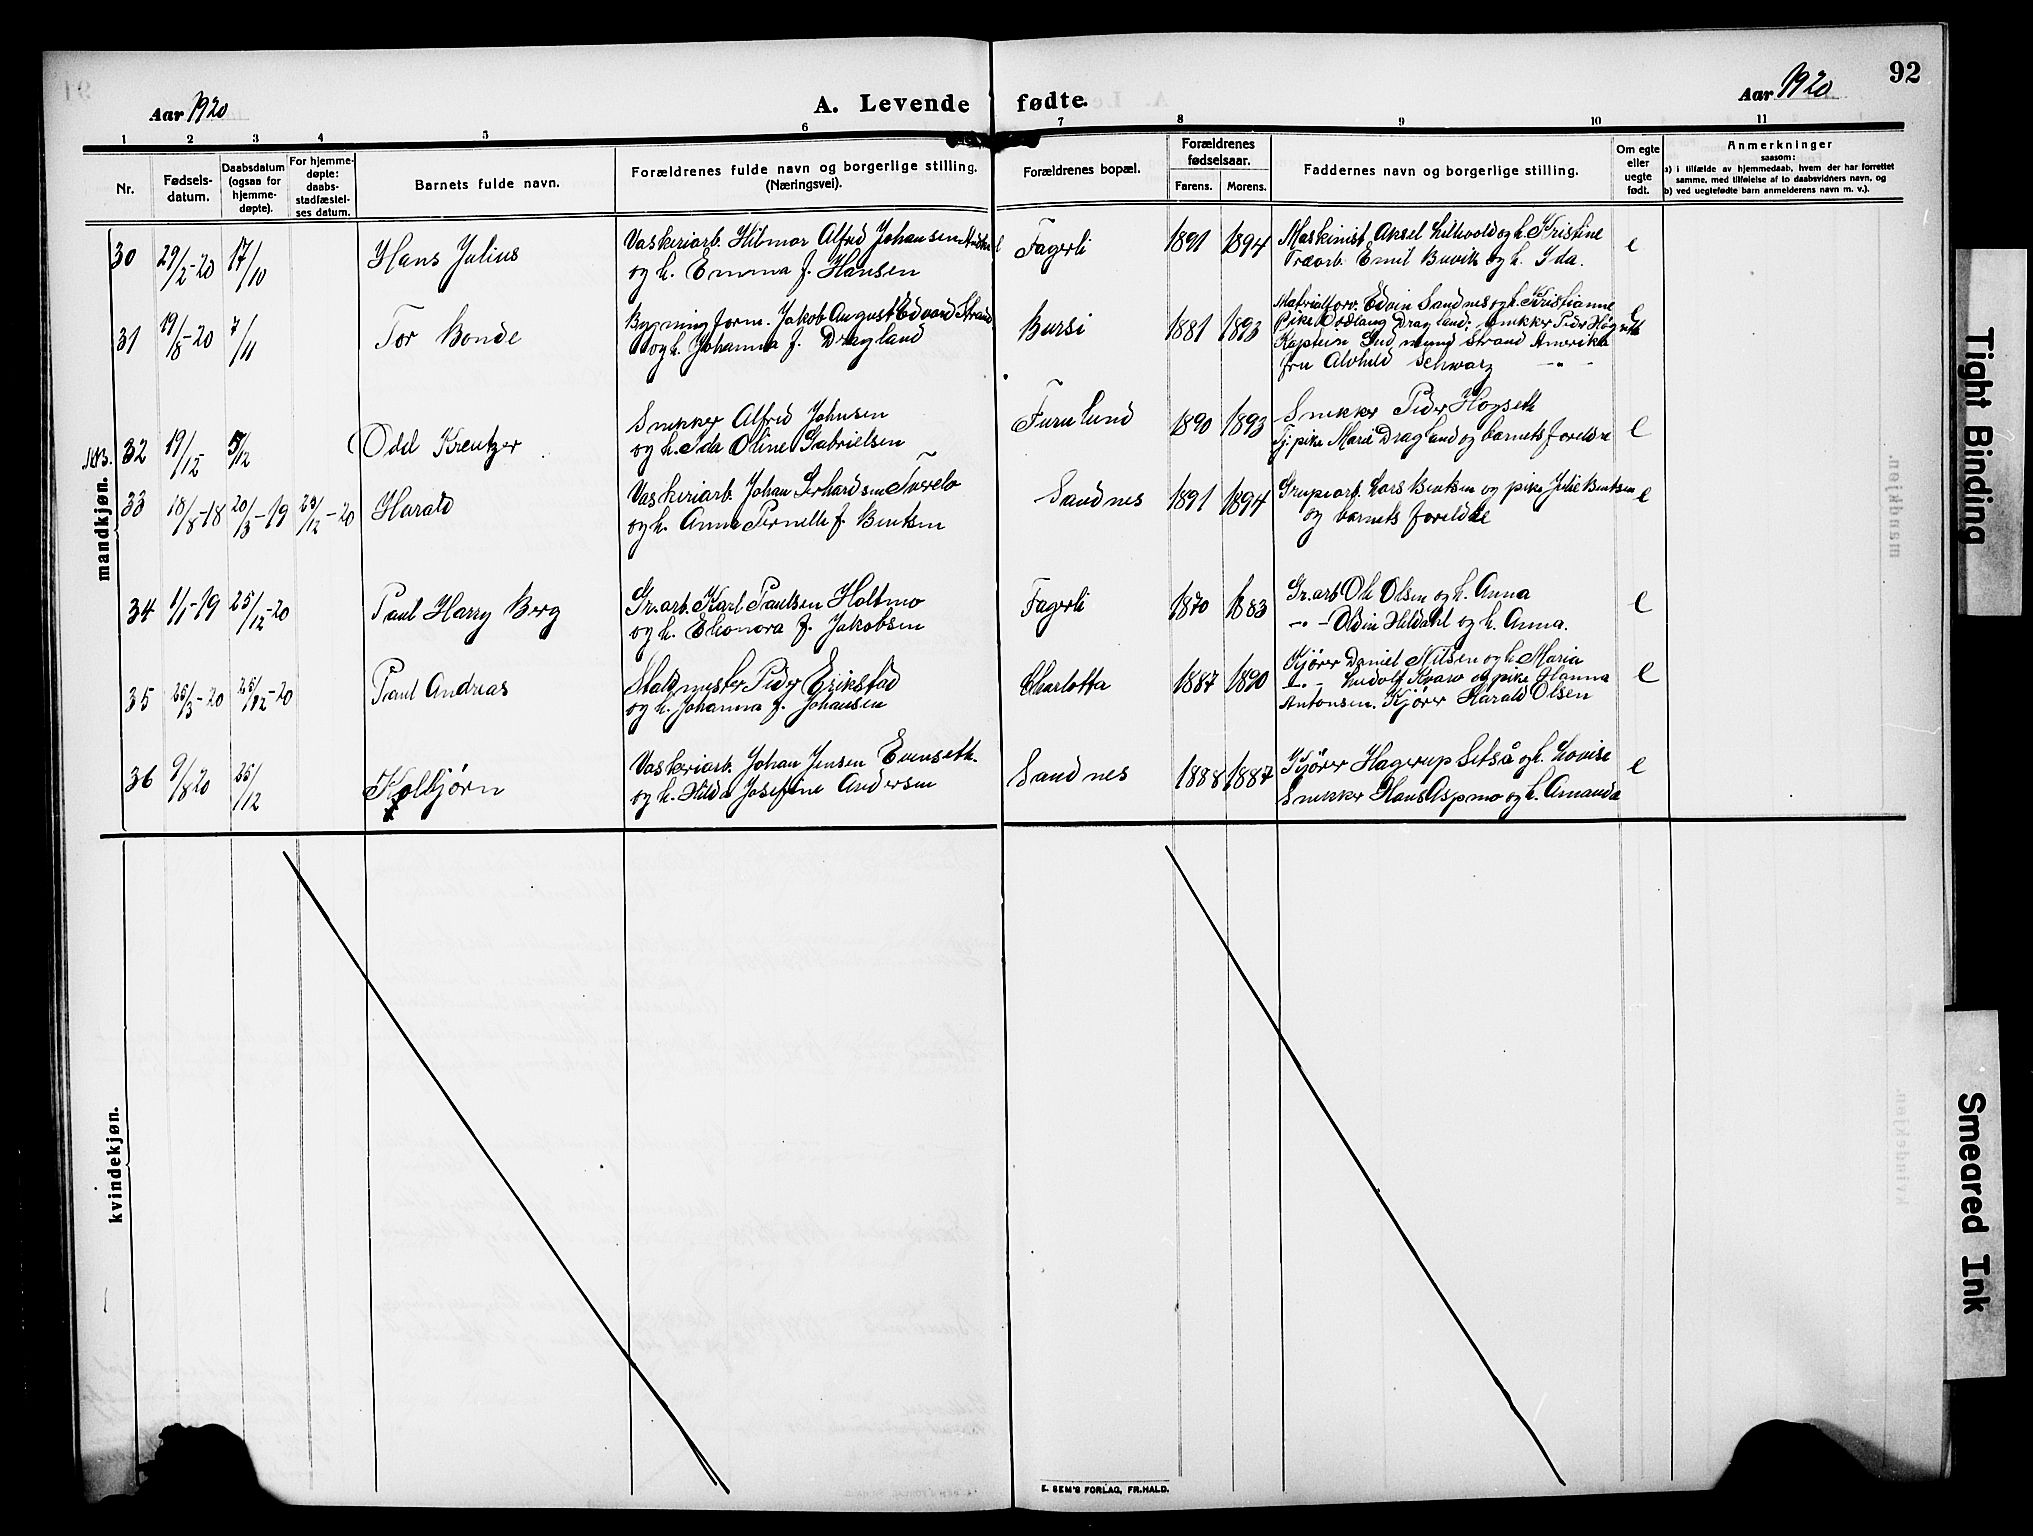 92
Aar 1920
A. Levende fødte.
Aar 1920
1 2 3 4 5 6 7 8 9 10 11
Nr.
Fødsels-
datum.
Daabsdatum
(ogsaa for
hjemme-
døpte).
For hjemme-
døpte:
daabs-
stadfæstel-
ses datum.
Barnets fulde navn.
Forældrenes fulde navn og borgerlige stilling.
(Næringsvei).
Forældrenes bopæl.
Forældrenes
fødselsaar.
Farens. Morens.
Faddernes navn og borgerlige stilling.
Om egte
eller
uegte
født.
Anmerkninger
saasom:
a) i tilfælde av hjemmedaab, hvem der har forrettet
samme, med tilføielse af to daabsvidners navn, og
b) ved uegtefødte barn anmelderens navn m. v.).
mandkjøn.
30 29/2-20 17/10 Hans Julius
Vaskeriarb. Hilmar Alfred Johansen
og h. Emma f. Hansen
Fagerli 1891 1894
Maskinist Aksel Lillevold og h. Kristine
Træarb. Emil Buvik og h. Ida.
e
31 19/8-20 7/11 Tor Bonde
Bygning form. Jakob August Edvard Strand
og h. Johanna f. Dragland
Bursi 1881 1893
Matrialforv. Edvin Sandnes og h. Kristianne
Pike Dragland; Snekker Peder Høgseth
Kaptein Gudmund Strand Amerika
fru Alvhild Schwarz -"-
e
NB. 32 19/12 5/12 Odd Kreutzer
Snekker Alfred Johnsen
og h. Ida Oline Gabrielsen
Furulund 1890 1893
Snekker Peder Hogseth
Tj. pike Marie Dragland og barnets foreldre
e
33 18/8-18 20/3-19 /12-20 Harald
Vaskeriarb. Johan Gerhardsen Tverelv
og h. Anna Pernelle f. Bentsen
Sandnes 1891 1894
Grupearb. Lars Bentsen og pike Julie Bentsen
og barnets foreldre
e
34 1/1-19 25/12-20 Paul Harry Berg
Gr. arb. Karl Paulsen Holtmo
og h. Elionora f. Jakobsen
Fagerli 1870 1883
Gr. arb Ole Olsen og h. Anna
-"- Oldin Hildahl og h. Anna.
e
35 25/3-20 25/12-20 Paul Andreas
Staldmester Peder Erikstad
og h. Johanna f. Johansen
Charlotta 1887 1890
Kjører Daniel Nilsen og h. Maria
-"- Ludolf Kvarv og pike Hanna
Antonsen. Kjører Harald Olsen
e
36 9/8 20 25/12 Kolbjørn
Vaskeriarb. Johan Jensen Evenseth.
og h. Hilda Josefine Andersen
Sandnes 1888 1887
Kjører Hagerup Setså og h. Lovise
Snekker Hans Aspmo og h. Amanda
e
kvindekjøn.
E. SEM'S FORLAG, FR.HALD.
Tight Binding
Smeared Ink